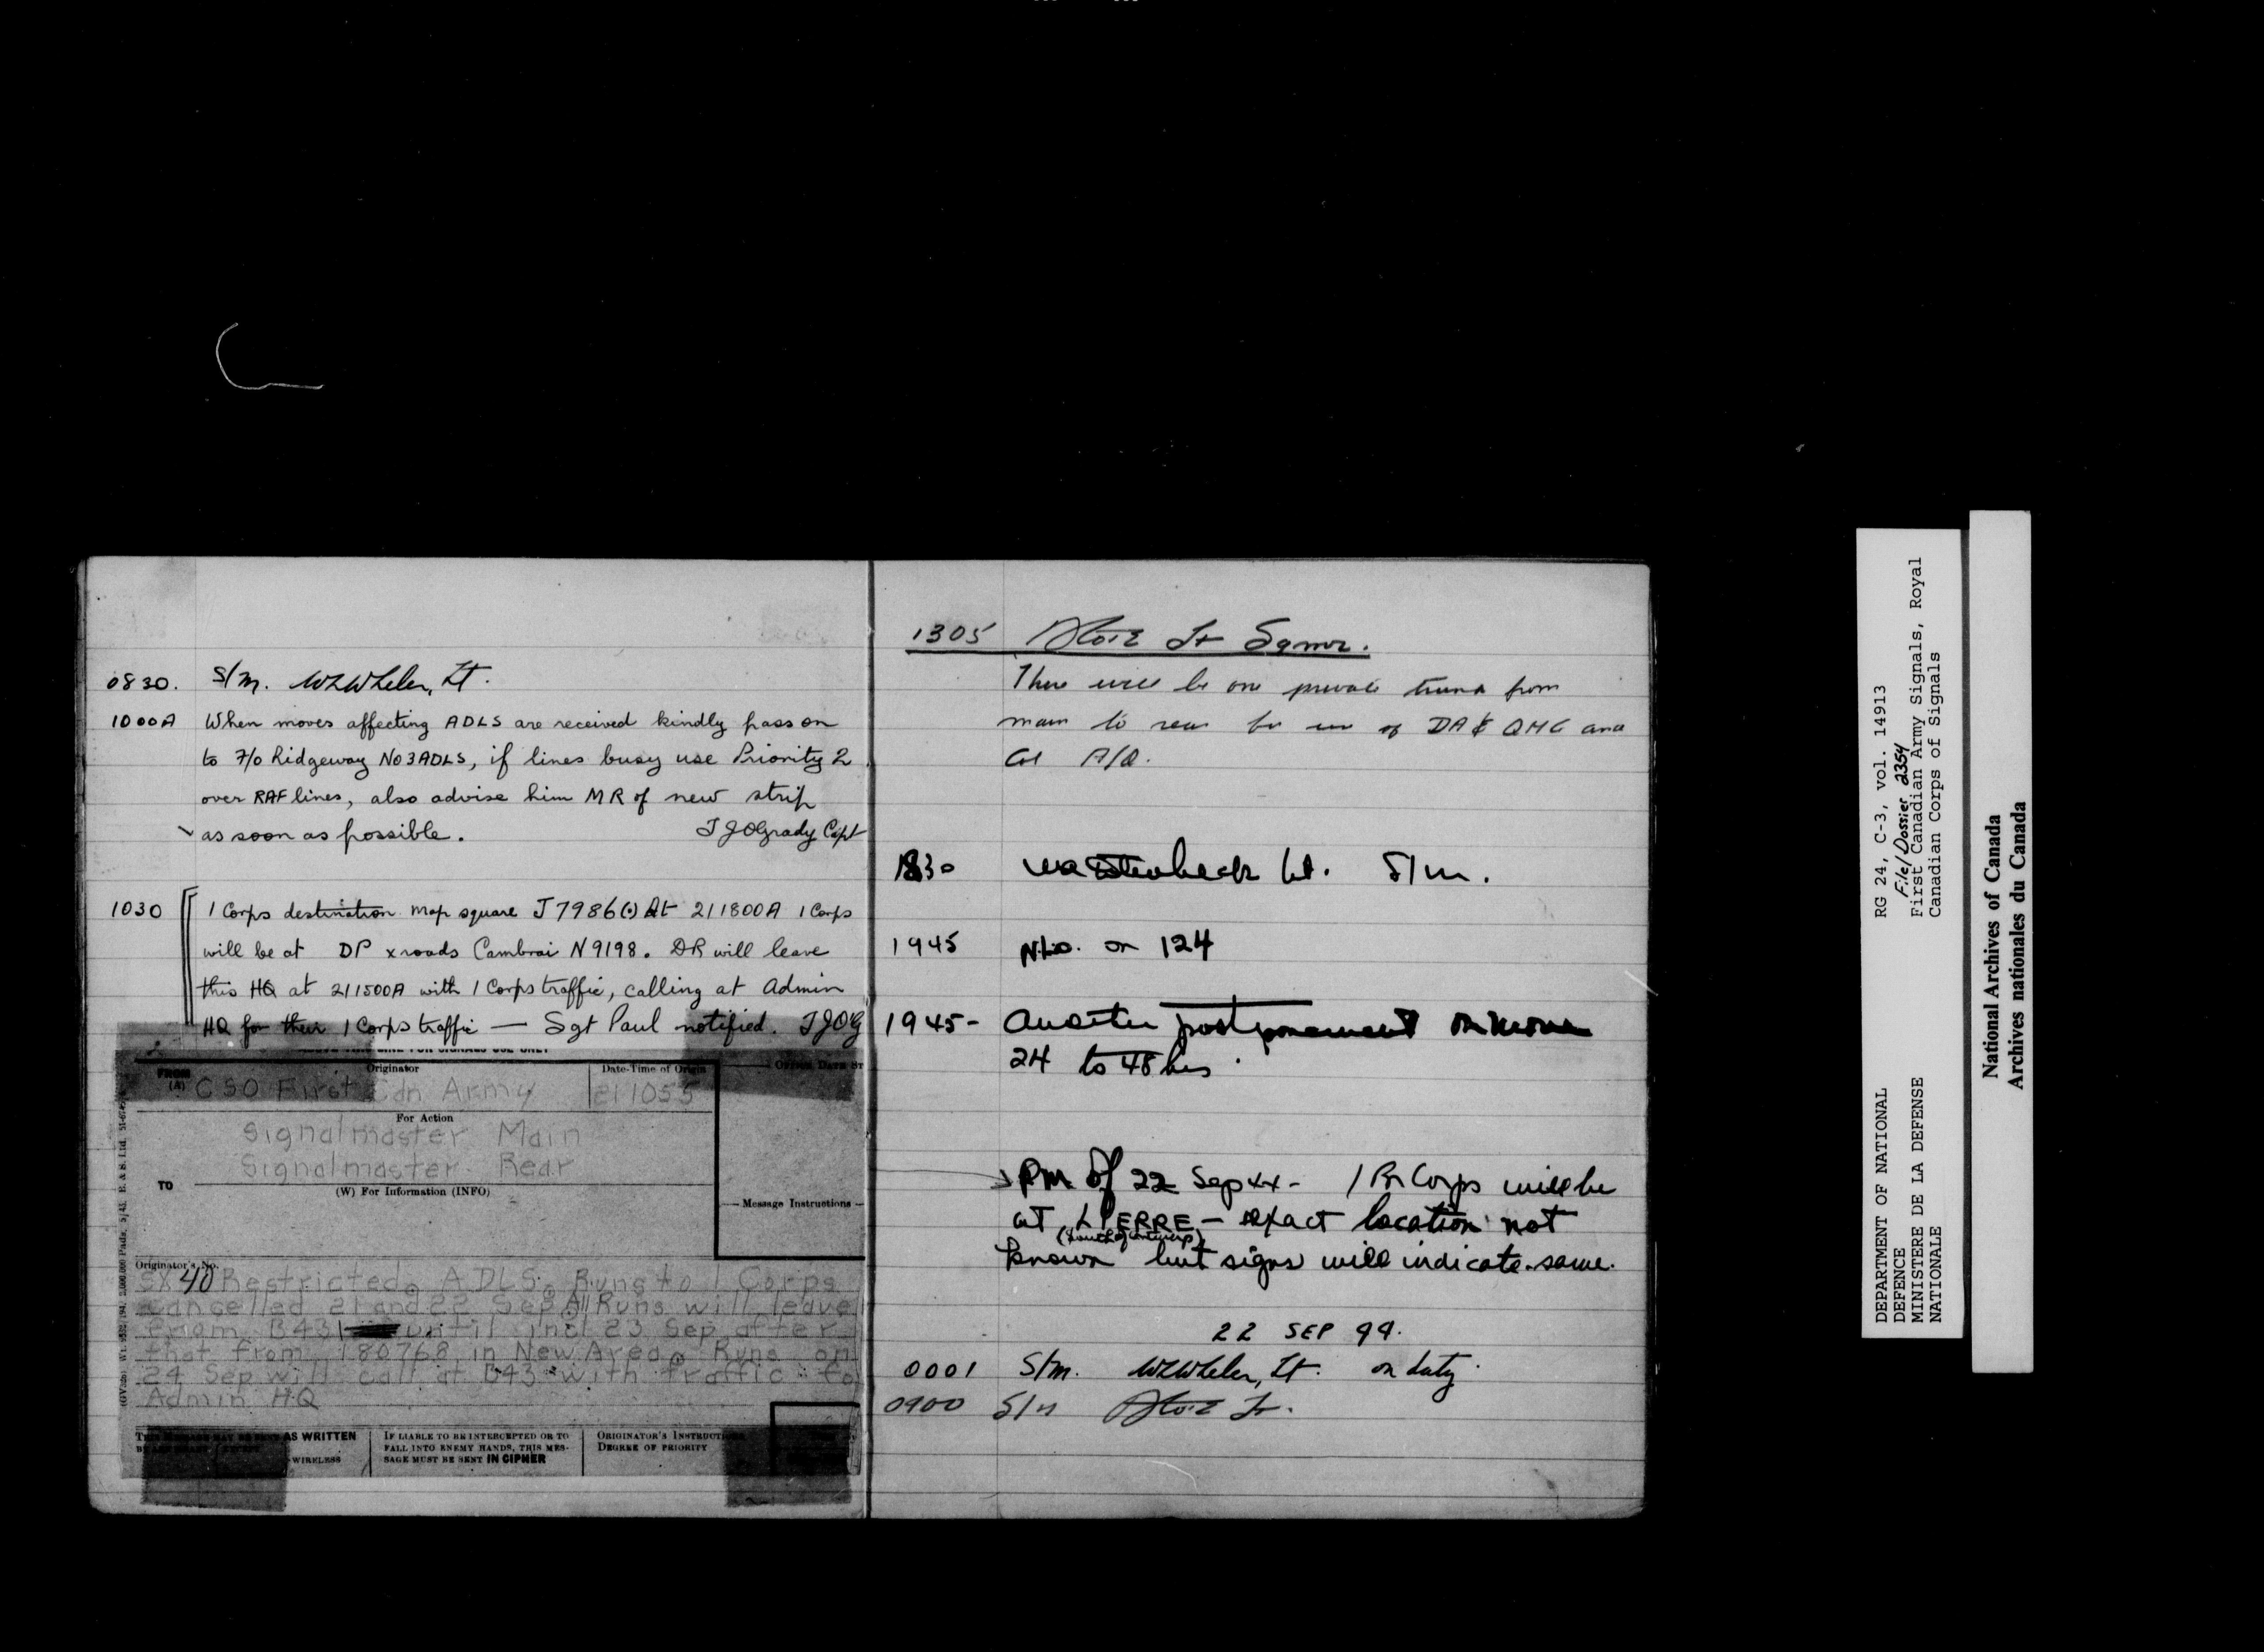 0830. S/M. WLWheler, Lt.
1000A When moves affecting ADLS are received kindly pass on
to F/O Ridgeway No3ADLS, if lines busy use Priority 2
over RAF lines, also advise him MR of new strip
as soon as possible. TJOGrady Capt
1030 1 Corps destination map square J7986(.) At 211800A 1 Corps
will be at DP xroads Cambrai N9198. DR will leave
this HQ at 211500A with 1 Corps traffic, calling at Admin
HQ for their 1 Corps traffic — Sgt Paul notified. TJOG
FROM (A) Originator Date-Time of Origin
CSO First Cdn Army 211055
For Action
Signalmaster Main
Signalmaster Rear
TO
(W) For Information (INFO)
Message Instructions
Originator's No.
SX40 Restricted. ADLS. Runs to 1 Corps
cancelled 21 and 22 Sep. All Runs will leave
from B431 until incl 23 Sep after
that from 180768 in New Area. Runs on
24 Sep will call at B43 with traffic fo
Admin HQ
AS WRITTEN
WIRELESS
IF LIABLE TO BE INTERCEPTED OR TO
FALL INTO ENEMY HANDS, THIS MES-
SAGE MUST BE SENT IN CIPHER
ORIGINATOR'S INSTRUCTI
DEGREE OF PRIORITY
1305 Lt Sgmr.
There will be one private trunk from
main to rear for use of DA & QMG and
Col A/Q.
1830 Lt. S/M.
1945 N.L.O. on 124
1945- Another postponement on move
24 to 48 hrs
PM of 22 Sep 44 - 1 Br Corps will be
at LIERRE - exact location not
(South of Antwerp)
known but signs will indicate same.
22 SEP 44.
0001 S/M. WLWheler, Lt. on duty
0900 S/M Lt.
DEPARTMENT OF NATIONAL
DEFENCE
MINISTERE DE LA DEFENSE
NATIONALE
RG 24, C-3, vol. 14913
File/Dossier 2354
First Canadian Army Signals, Royal
Canadian Corps of Signals
National Archives of Canada
Archives nationales du Canada